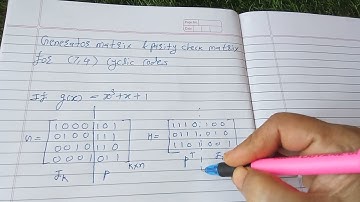 Generator matrix & parity check matrix
for (7,4) cyclic codes
If g(x) = x³+x+1
G = [1000 101
0100 111
0010 110
0001 011] k×n
Ik P
H = [1110 100
0111 010
1101 001]
Pᵀ I